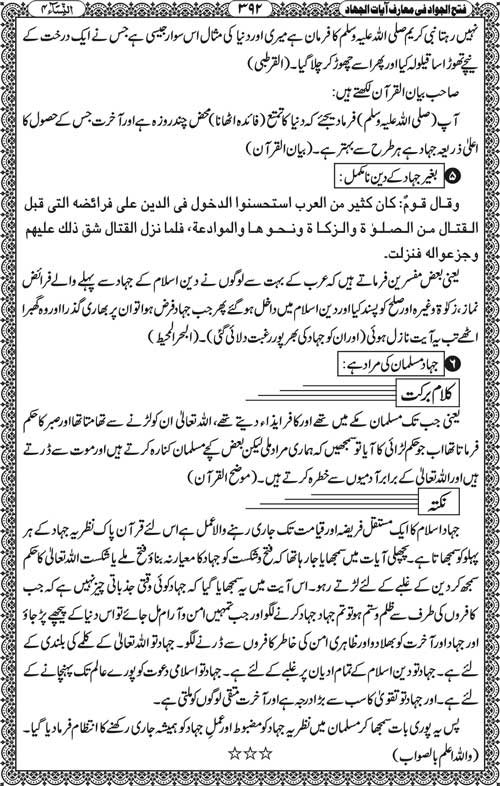 فتح الجواد فی معارف آیات الجهاد
۳۹۲
النِّسَآء ۴
نہیں رہتا نبی کریم صلی اللہ علیہ وسلم کا فرمان ہے میری اور دنیا کی مثال اس سوار جیسی ہے جس نے ایک درخت کے
نیچے تھوڑا سا قیلولہ کیا اور پھر اسے چھوڑ کر چلا گیا۔ (القرطبی)
صاحب بیان القرآن لکھتے ہیں:
آپ (صلی اللہ علیہ وسلم) فرما دیجئے کہ دنیا کا تمتع (فائدہ اٹھانا) محض چند روزہ ہے اور آخرت جس کے حصول کا
اعلیٰ ذریعہ جہاد ہے ہر طرح سے بہتر ہے۔ (بیان القرآن)
۵ بغیر جہاد کے دین نامکمل:
وقال قوم: كان كثير من العرب استحسنوا الدخول فى الدين على فرائضه التى قبل
القتال من الصلوٰة والزكاة ونحوها والموادعة، فلما نزل القتال شق ذلك عليهم
وجزعوا له فنزلت.
یعنی بعض مفسرین فرماتے ہیں کہ عرب کے بہت سے لوگوں نے دین اسلام کے جہاد سے پہلے والے فرائض
نماز، زکوۃ وغیرہ اور صلح کو پسند کیا اور دین اسلام میں داخل ہو گئے پھر جب جہاد فرض ہوا تو ان پر بھاری گذرا اور وہ گھبرا
اٹھے تب یہ آیت نازل ہوئی (اور ان کو جہاد کی بھرپور رغبت دلائی گئی)۔ (البحر المحیط)
۶ جہاد مسلمان کی مراد ہے:
کلام برکت
یعنی جب تک مسلمان مکے میں تھے اور کافر ایذاء دیتے تھے، اللہ تعالیٰ ان کو لڑنے سے تھامتا تھا اور صبر کا حکم
فرماتا تھا اب جو حکم لڑائی کا آیا تو سمجھیں کہ ہماری مراد ملی لیکن بعض کچے مسلمان کنارہ کرتے ہیں اور موت سے ڈرتے
ہیں اور اللہ تعالیٰ کے برابر آدمیوں سے خطرہ کرتے ہیں۔ (موضح القرآن)
نکتہ
جہاد اسلام کا ایک مستقل فریضہ اور قیامت تک جاری رہنے والا عمل ہے اس لئے قرآن پاک نظریہ جہاد کے ہر
پہلو کو سمجھاتا ہے۔ پچھلی آیات میں سمجھایا جا رہا تھا کہ فتح و شکست کو جہاد کا معیار نہ بناؤ فتح ملے یا شکست اللہ تعالیٰ کا حکم
سمجھ کر دین کے غلبے کے لئے لڑتے رہو۔ اس آیت میں یہ سمجھایا گیا کہ جہاد کوئی وقتی جذباتی چیز نہیں ہے کہ جب
کافروں کی طرف سے ظلم و ستم ہو تو تم جہاد جہاد کرنے لگو اور جب تمہیں امن و آرام مل جائے تو اس دنیا کے پیچھے پڑ جاؤ
اور جہاد اور آخرت کو بھلا دو اور ظاہری امن کی خاطر کافروں سے ڈرنے لگو۔ جہاد تو اللہ تعالیٰ کے کلمے کی بلندی کے
لئے ہے۔ جہاد تو دین اسلام کے تمام ادیان پر غلبے کے لئے ہے۔ جہاد تو اسلامی دعوت کو پورے عالم تک پہنچانے کے
لئے ہے۔ اور جہاد تو تقویٰ کا سب سے بڑا درجہ ہے اور آخرت متقی لوگوں کو ملتی ہے۔
پس یہ پوری بات سمجھا کر مسلمان میں نظریہ جہاد کو مضبوط اور عمل جہاد کو ہمیشہ جاری رکھنے کا انتظام فرما دیا گیا۔
(واللہ اعلم بالصواب)
☆☆☆